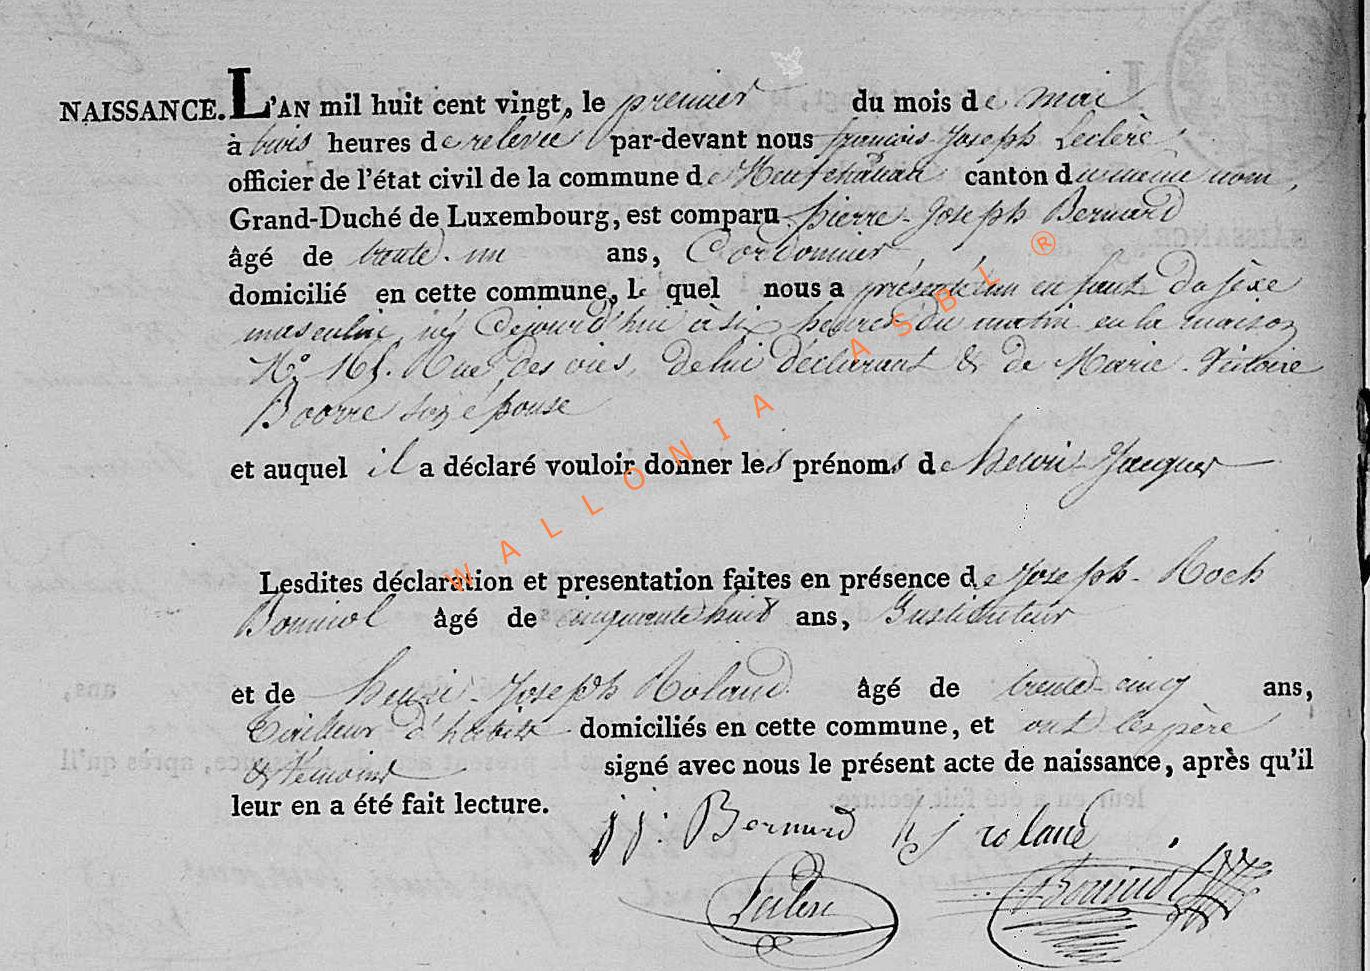 NAISSANCE. L'AN mil huit cent vingt, le premier du mois de mai
à trois heures de relevée par-devant nous françois-Joseph Leclère
officier de l'état civil de la commune de Neufchâteau canton du même nom,
Grand-Duché de Luxembourg, est comparu pierre-Joseph Bernard
âgé de trente-un ans, Cordonnier,
domicilié en cette commune, le quel nous a présenté un enfant du sèxe
masculin né cejourd'hui à six heures du matin en la maison
N.° 165. Rue des vies, de lui déclarant & de Marie-Victoire
son épouse
et auquel il a déclaré vouloir donner les prénoms de henri-Jacques
Lesdites déclaration et presentation faites en présence de Joseph-Roch
Bonniol âgé de cinquante huit ans, Instituteur
et de henri-Joseph Roland âgé de trente-cinq ans,
tailleur d'habits domiciliés en cette commune, et ont les père
& témoins signé avec nous le présent acte de naissance, après qu'il
leur en a été fait lecture.
Bernard h j roland
Leclere Bonniol
WALLONIA ASBL ®